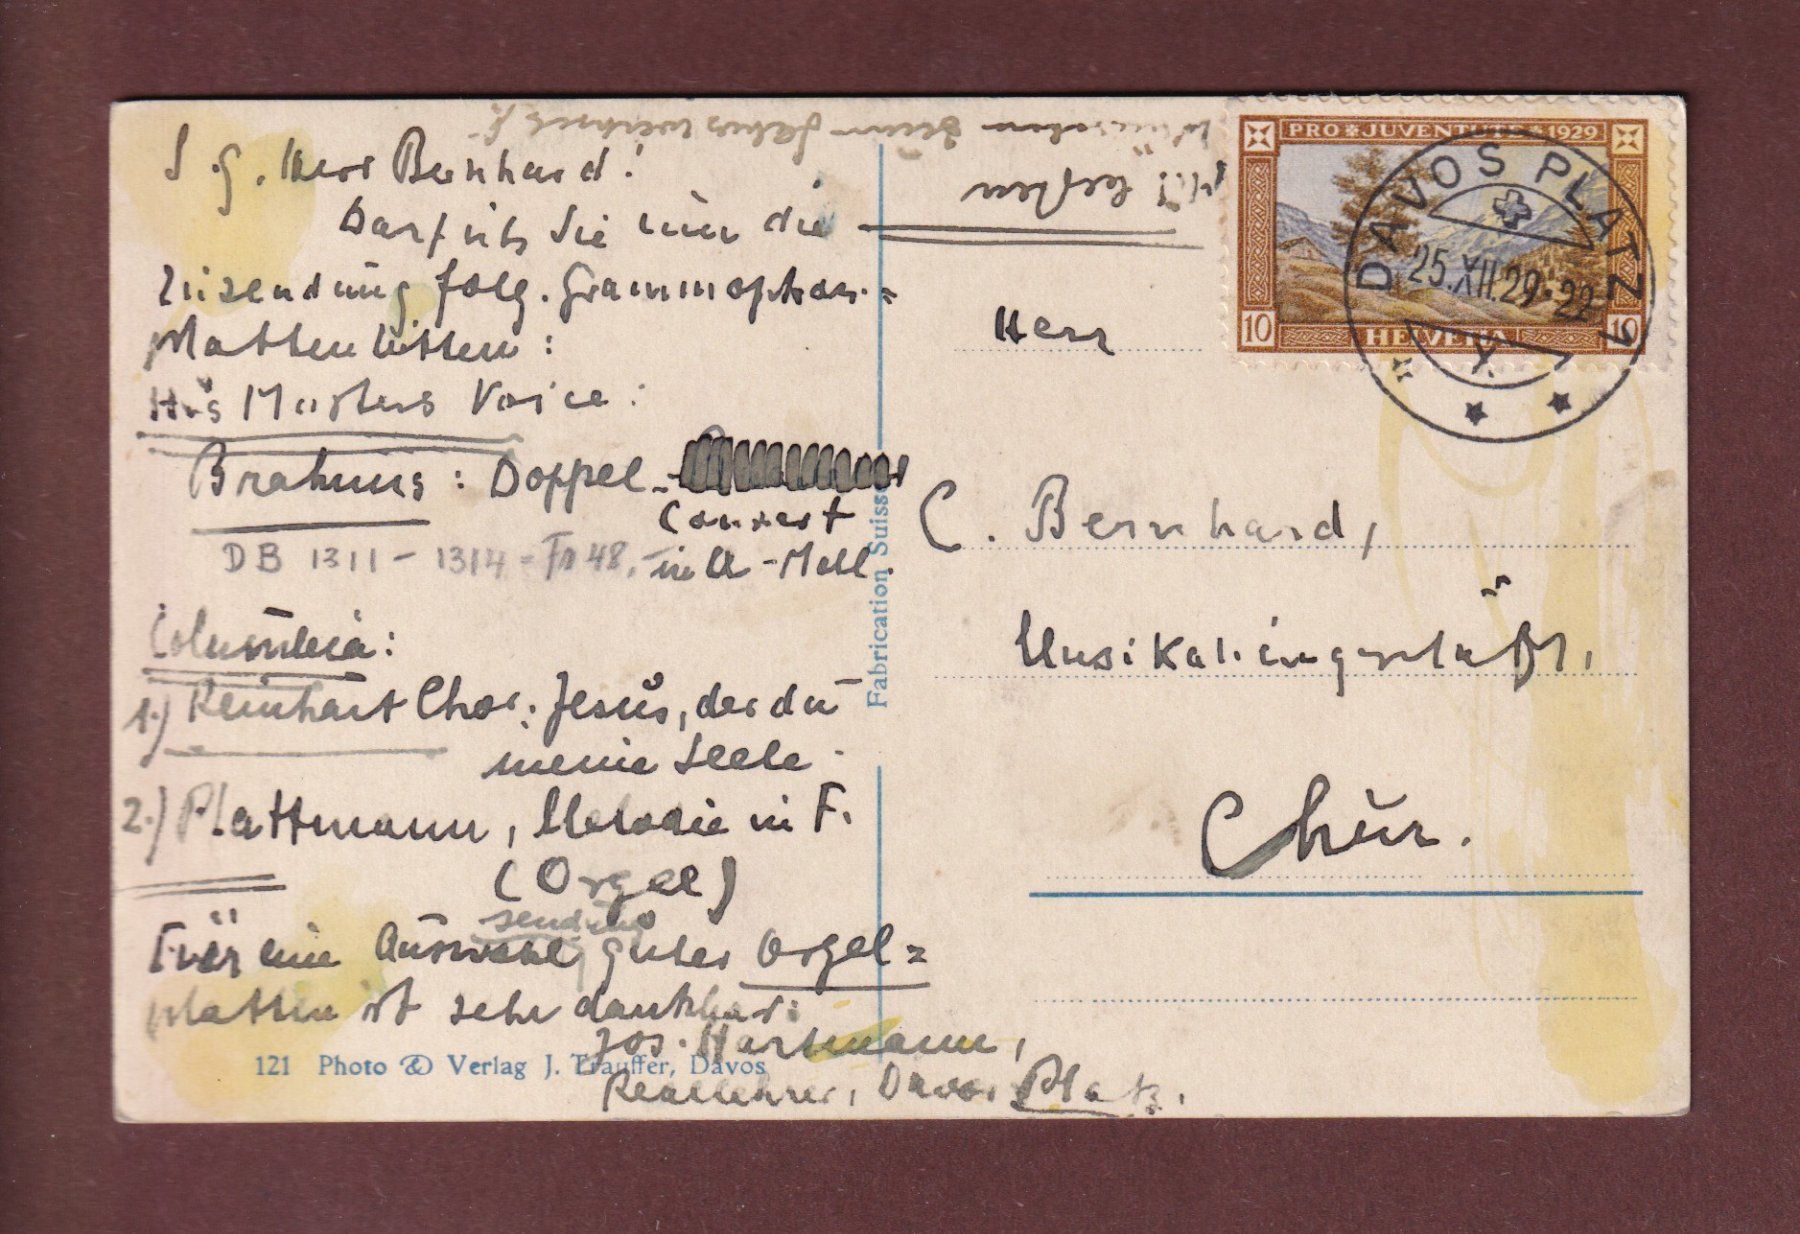 S. g. Herr Bernhard!
Darf ich Sie um die
Zusendung folg. Grammophon=
platten bitten:
His Masters Voice:
Brahms: Doppel-
Conzert
DB 1311 - 1314 = Fr 48. in A-Moll.
Columbia:
1.) Reinhart Chor: Jesus, der du
meine Seele
2.) Plattmann, Melodie in F.
(Orgel)
sendung
Für eine Auswahl guter Orgel=
platten ist sehr dankbar:
Jos. Hartmann,
Reallehrer, Davos Platz.
121 Photo & Verlag J. Trauffer, Davos
Fabrication Suisse
Mit besten
Wünschen zum Jahreswechsel
PRO JUVENTUTE 1929
10 HELVETIA 10
DAVOS PLATZ 1
25.XII.29-22
Herr
C. Bernhard,
Musikaliengeschäft,
Chur.